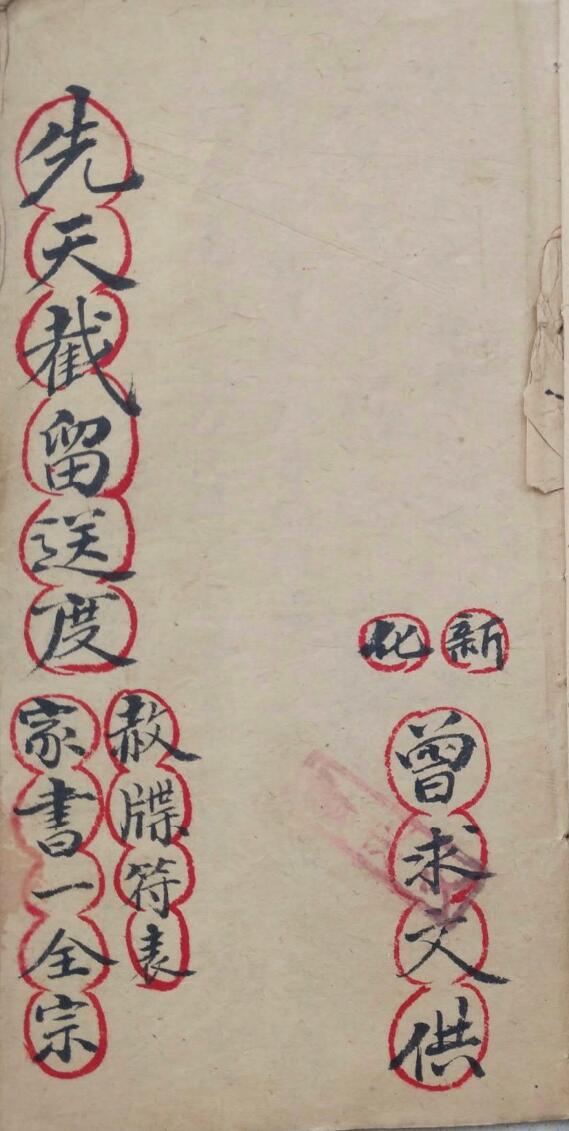 新化
曾求文供
赦牒符表
家書一全宗
先天截留送度